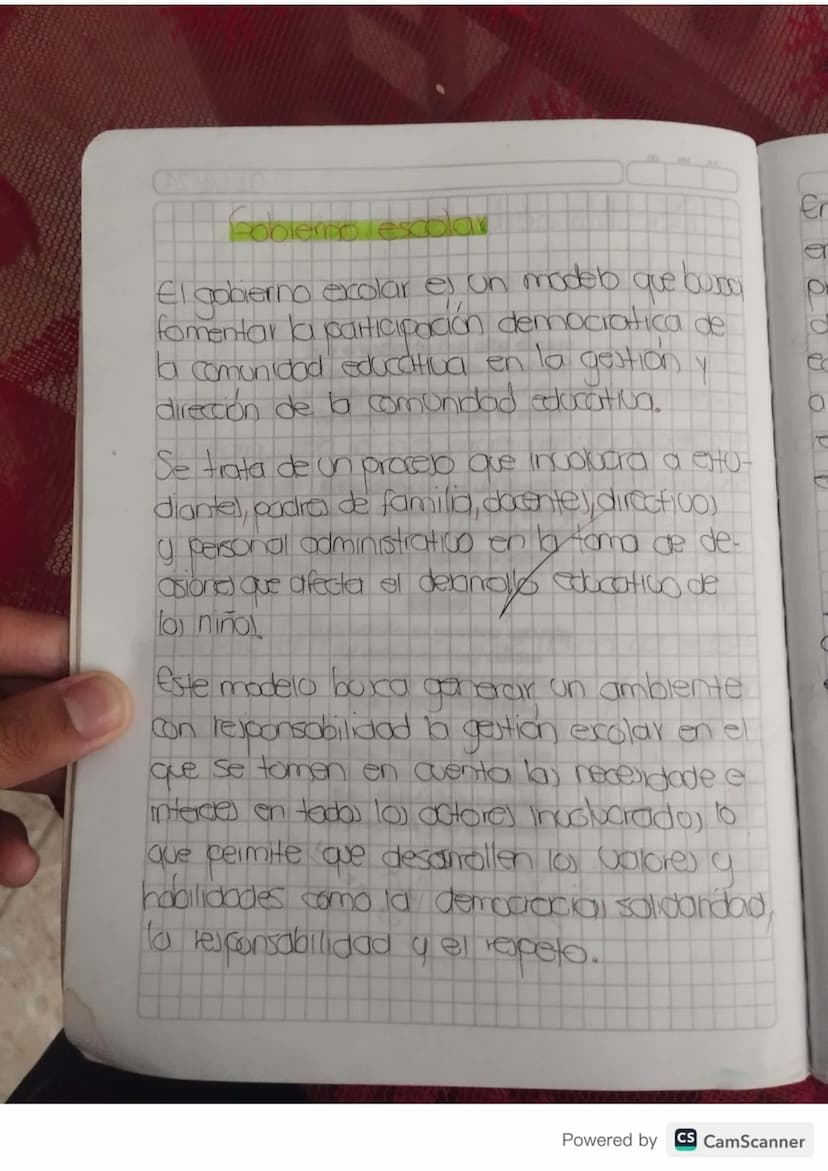 Gobierno escolar
El gobierno escolar es un modelo que busca
fomentar la participación democratica de
la comunidad educativa en la gestión y
dirección de la comunidad educativa.
Se trata de un proceso que involucra a estu-
diantes, padres de familia, docentes, directivos
y personal administrativo en la toma de de-
cisiones que afecta el desarrollo educativo de
los niños.
Este modelo busca generar un ambiente
con responsabilidad la gestión escolar en el
que se tomen en cuenta las necesidade e
intereses en todos los actores involucrados, lo
que permite que desarrollen los valores y
habilidades como la democracia, solidaridad,
la responsabilidad y el respeto.
Er
er
Powered by CS CamScanner